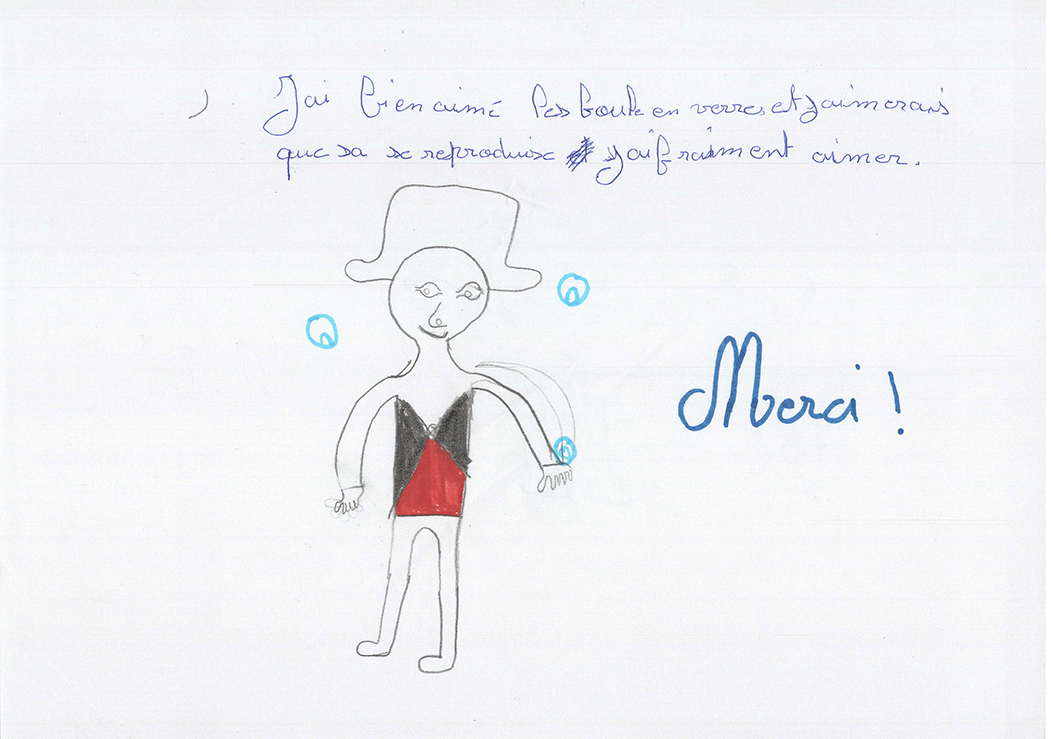 J'ai bien aimé les boule en verres et j'aimerais
que sa se reproduise j'ai fraiment aimer.
Merci !